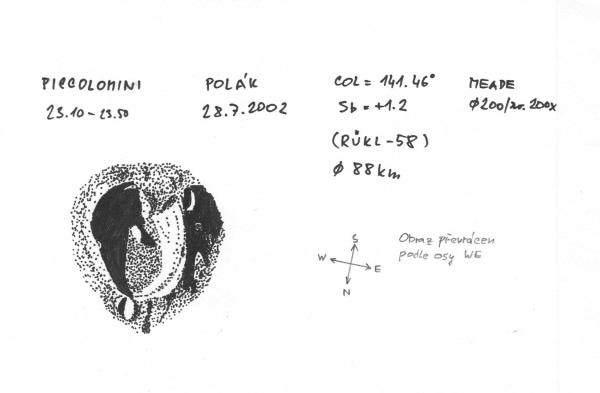 PICCOLOMINI
23.10 – 23.50
POLÁK
28.7.2002
COL = 141.46°
Sb = +1.2
(RÜKL - 58)
Ø 88 km
MEADE
Ø200/zv. 200x
S
W
E
N
Obraz převrácen
podle osy WE